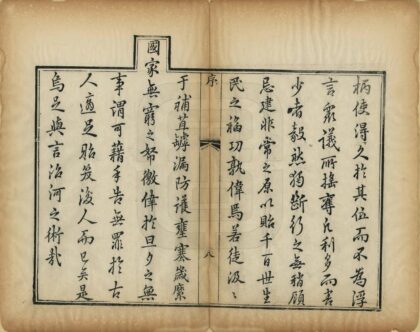 柄使得久於其位而不為浮
言衆議所搖奪凡利多而害
少者毅然獨斷行之無稍顧
忌建非常之原以貽千百世生
民之福功孰偉焉若徒汲〻
序
八
于補苴罅漏防護壅塞歲縻
國家無窮之帑徼倖於旦夕之無
事謂可藉手告無罪於古
人適足貽笑後人而已矣是
烏足與言治河之術哉